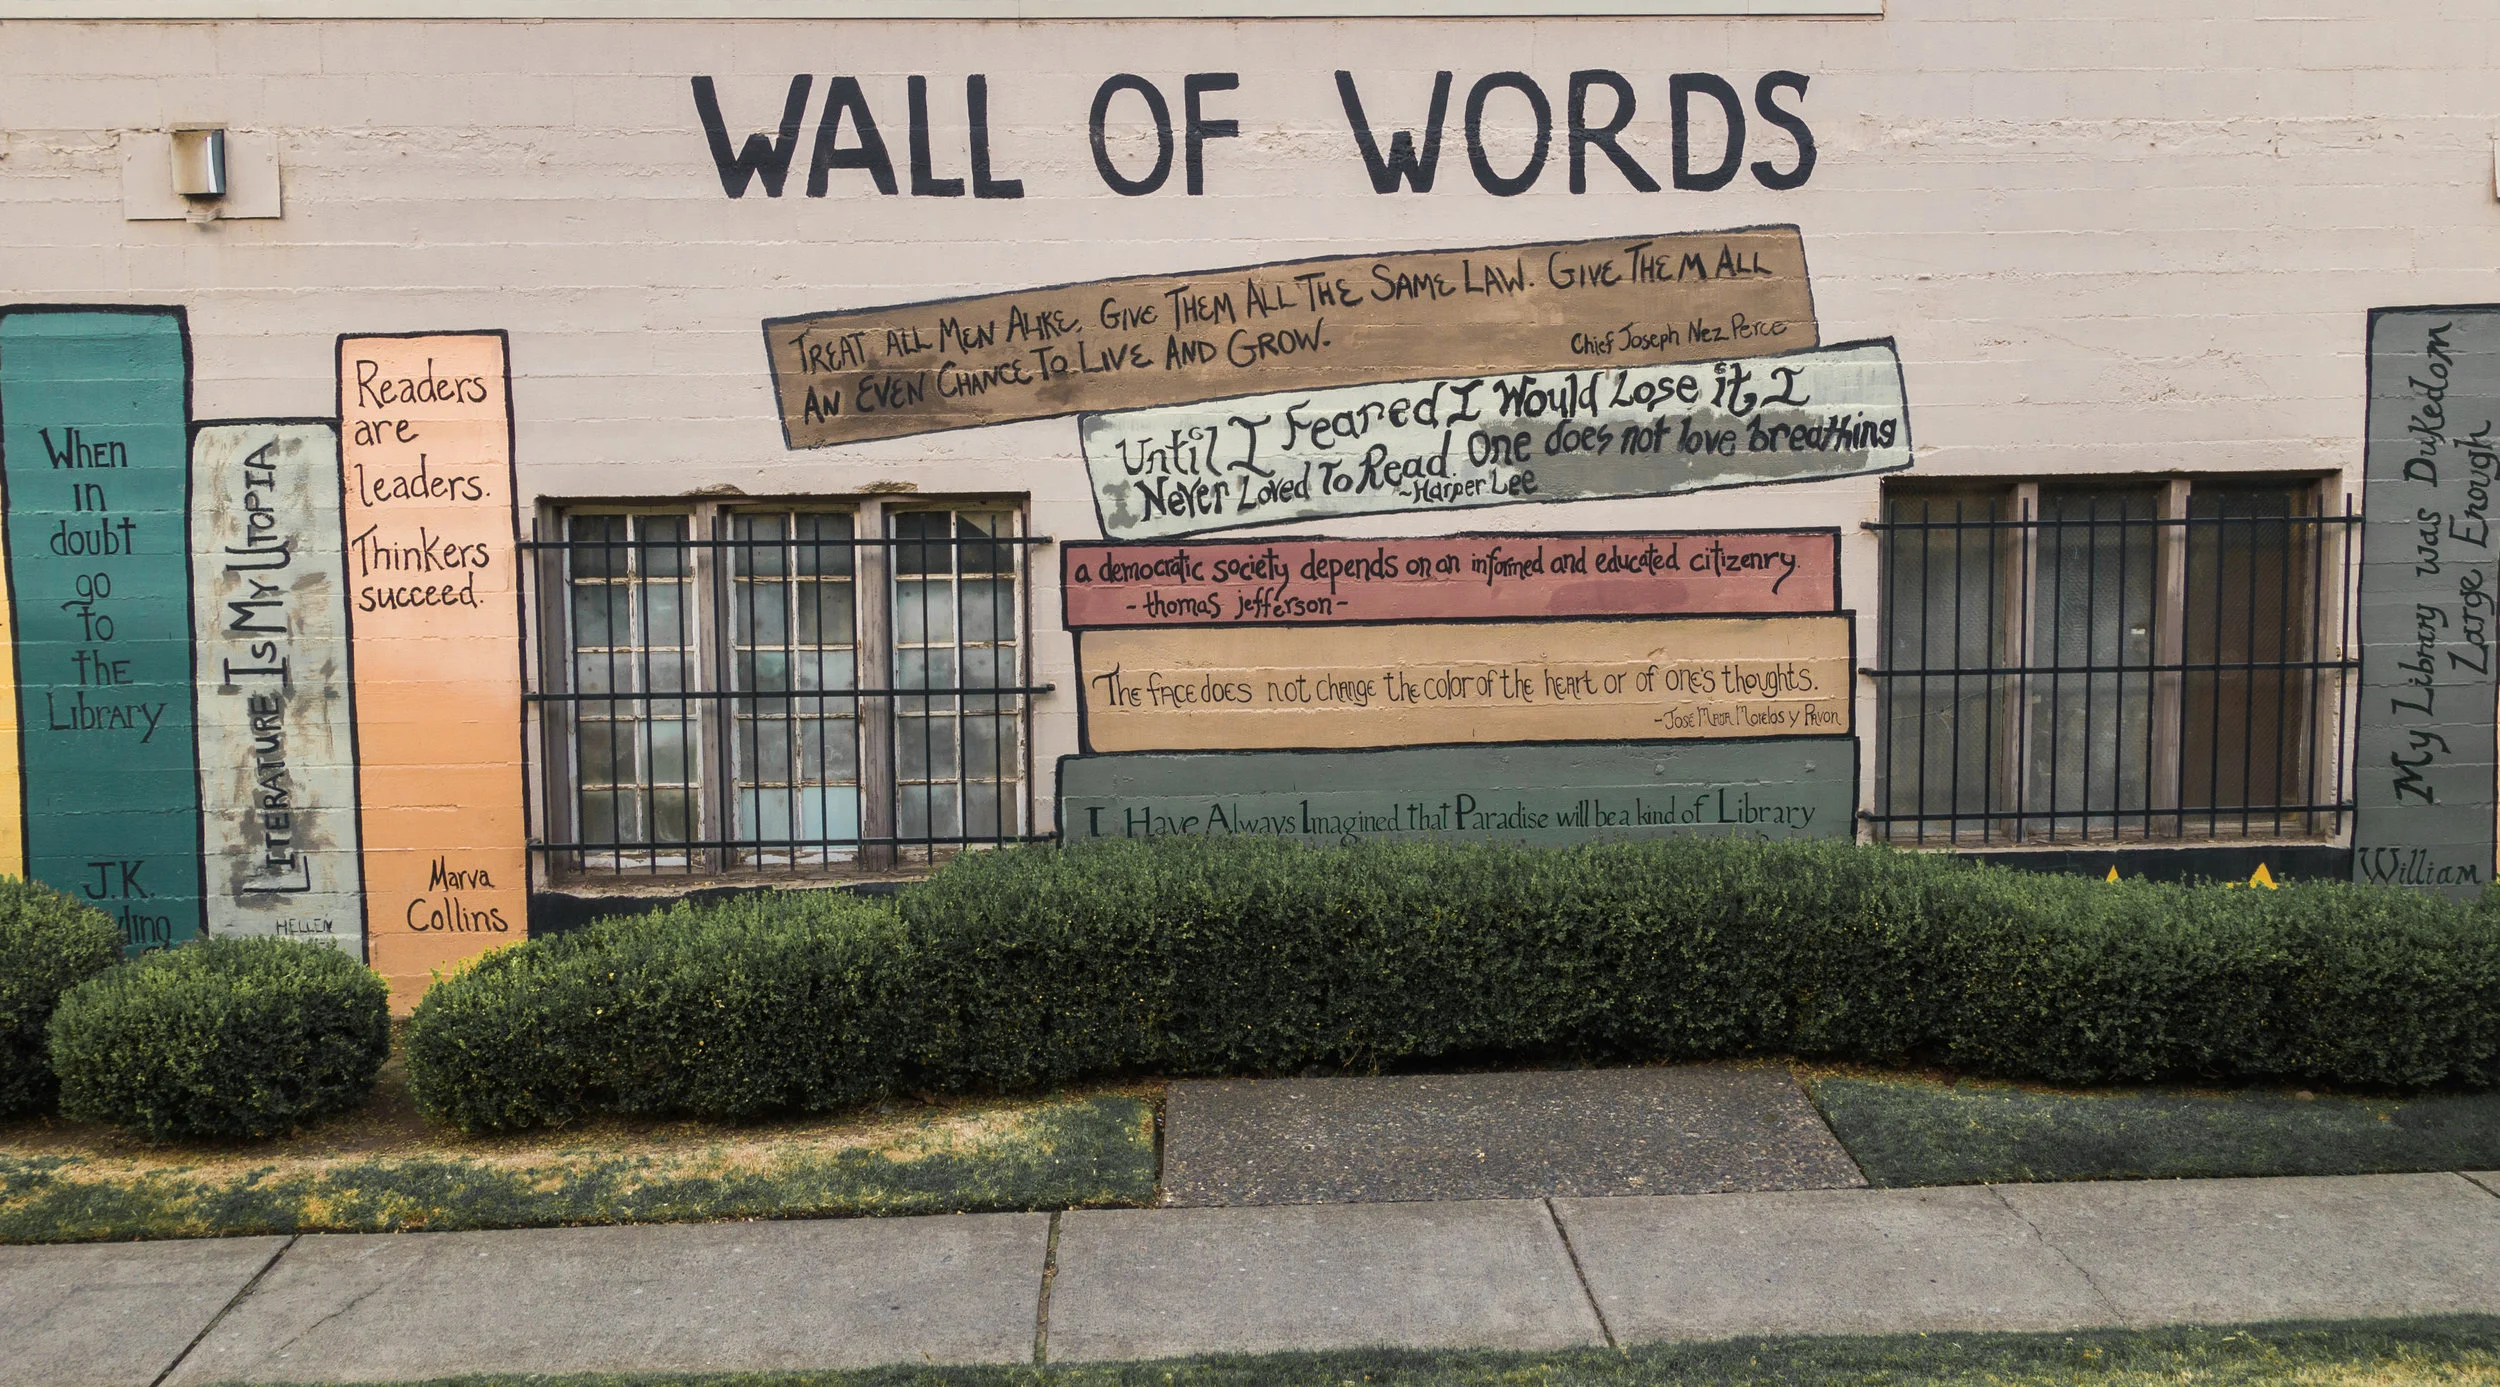 WALL OF WORDS
When
in
doubt
go
to
the
Library
J.K.
LITERATURE IS MY UTOPIA
HELLEN
Readers
are
leaders.
Thinkers
succeed.
Marva
Collins
TREAT ALL MEN ALIKE. GIVE THEM ALL THE SAME LAW. GIVE THEM ALL
AN EVEN CHANCE TO LIVE AND GROW.
Chief Joseph Nez Perce
Until I Feared I Would Lose it, I
Never Loved To Read. One does not love breathing
~Harper Lee
a democratic society depends on an informed and educated citizenry.
- thomas jefferson -
The face does not change the color of the heart or of one's thoughts.
-José Maria Morelos y Pavon
I Have Always Imagined that Paradise will be a kind of Library
My Library was Dukedom
Large Enough
William